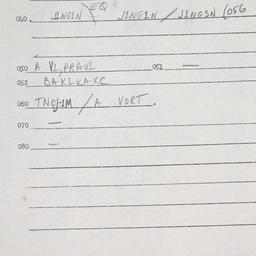 040. JINGIN EQ JINGIN / JINGSN (056
050 A VI, PRAVI 051 —
052 BAKLKAXC
060 TNCJ-IM / A VORT.
070 —
080 —